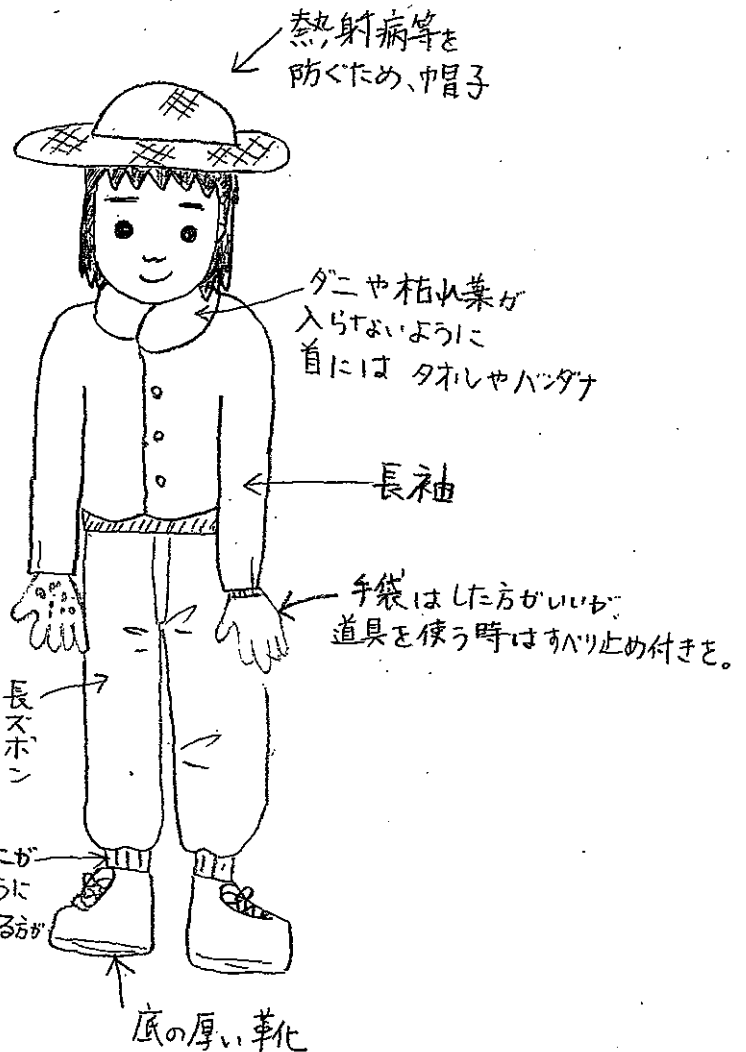 熱射病等を
防ぐため、帽子
ダニや枯れ葉が
入らないように
首には タオルやバンダナ
長袖
手袋はした方がいいが
道具を使う時はすべり止め付きを。
長ズボン
こが
うに
る方が
底の厚い革化